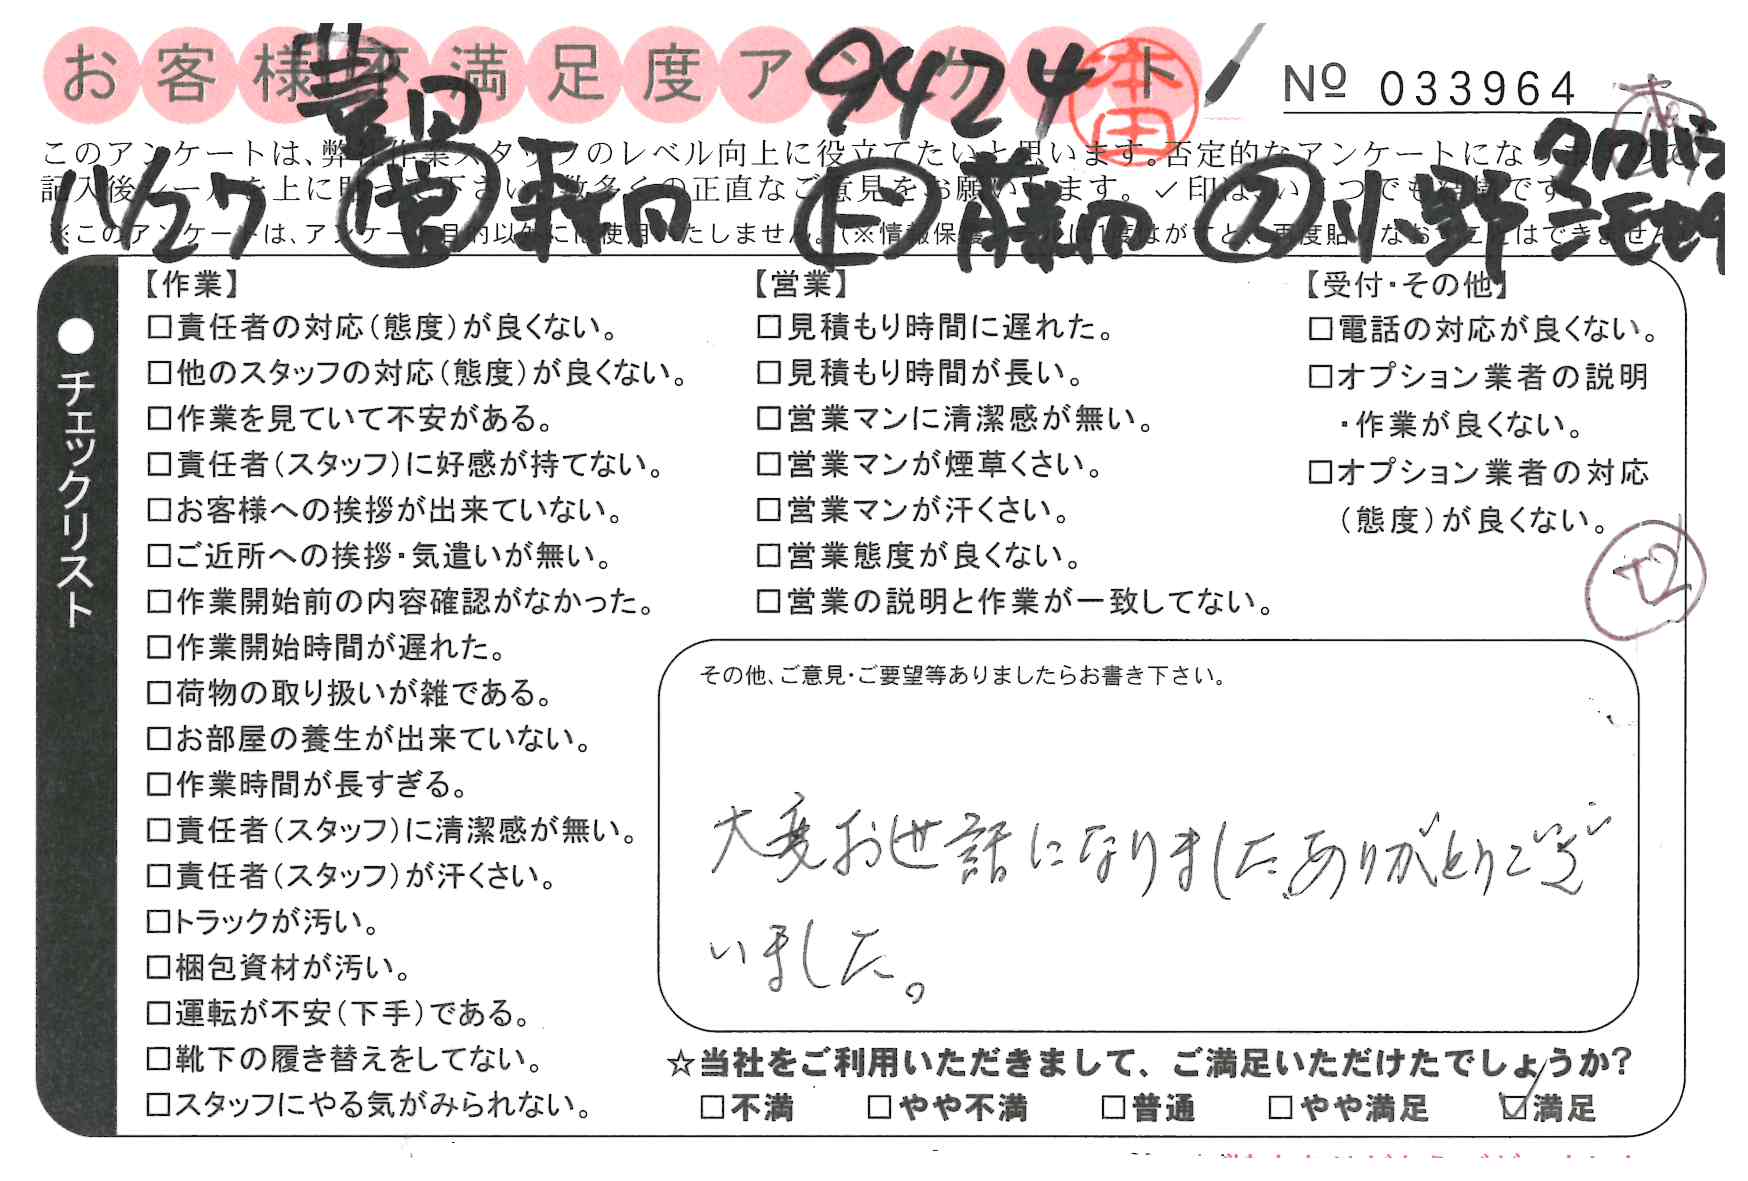 お客様不満足度アンケート
豊田 9424 本田
№ 033964
このアンケートは、弊社作業スタッフのレベル向上に役立てたいと思います。否定的なアンケートになりますので
記入後シールを上に貼って下さい。数多くの正直なご意見をお願いします。✓印は、いくつでも結構です。
11/27 営 上 藤田 小野
※このアンケートは、アンケート目的以外には使用いたしません。(※情報保護シールは1度はがすと、再度貼りなおすことはできません。
●チェックリスト
【作業】
□責任者の対応(態度)が良くない。
□他のスタッフの対応(態度)が良くない。
□作業を見ていて不安がある。
□責任者(スタッフ)に好感が持てない。
□お客様への挨拶が出来ていない。
□ご近所への挨拶・気遣いが無い。
□作業開始前の内容確認がなかった。
□作業開始時間が遅れた。
□荷物の取り扱いが雑である。
□お部屋の養生が出来ていない。
□作業時間が長すぎる。
□責任者(スタッフ)に清潔感が無い。
□責任者(スタッフ)が汗くさい。
□トラックが汚い。
□梱包資材が汚い。
□運転が不安(下手)である。
□靴下の履き替えをしてない。
□スタッフにやる気がみられない。
【営業】
□見積もり時間に遅れた。
□見積もり時間が長い。
□営業マンに清潔感が無い。
□営業マンが煙草くさい。
□営業マンが汗くさい。
□営業態度が良くない。
□営業の説明と作業が一致してない。
【受付・その他】
□電話の対応が良くない。
□オプション業者の説明
・作業が良くない。
□オプション業者の対応
(態度)が良くない。
その他、ご意見・ご要望等ありましたらお書き下さい。
大変お世話になりました。ありがとうござ
いました。
☆当社をご利用いただきまして、ご満足いただけたでしょうか?
□不満 □やや不満 □普通 □やや満足 ☑満足